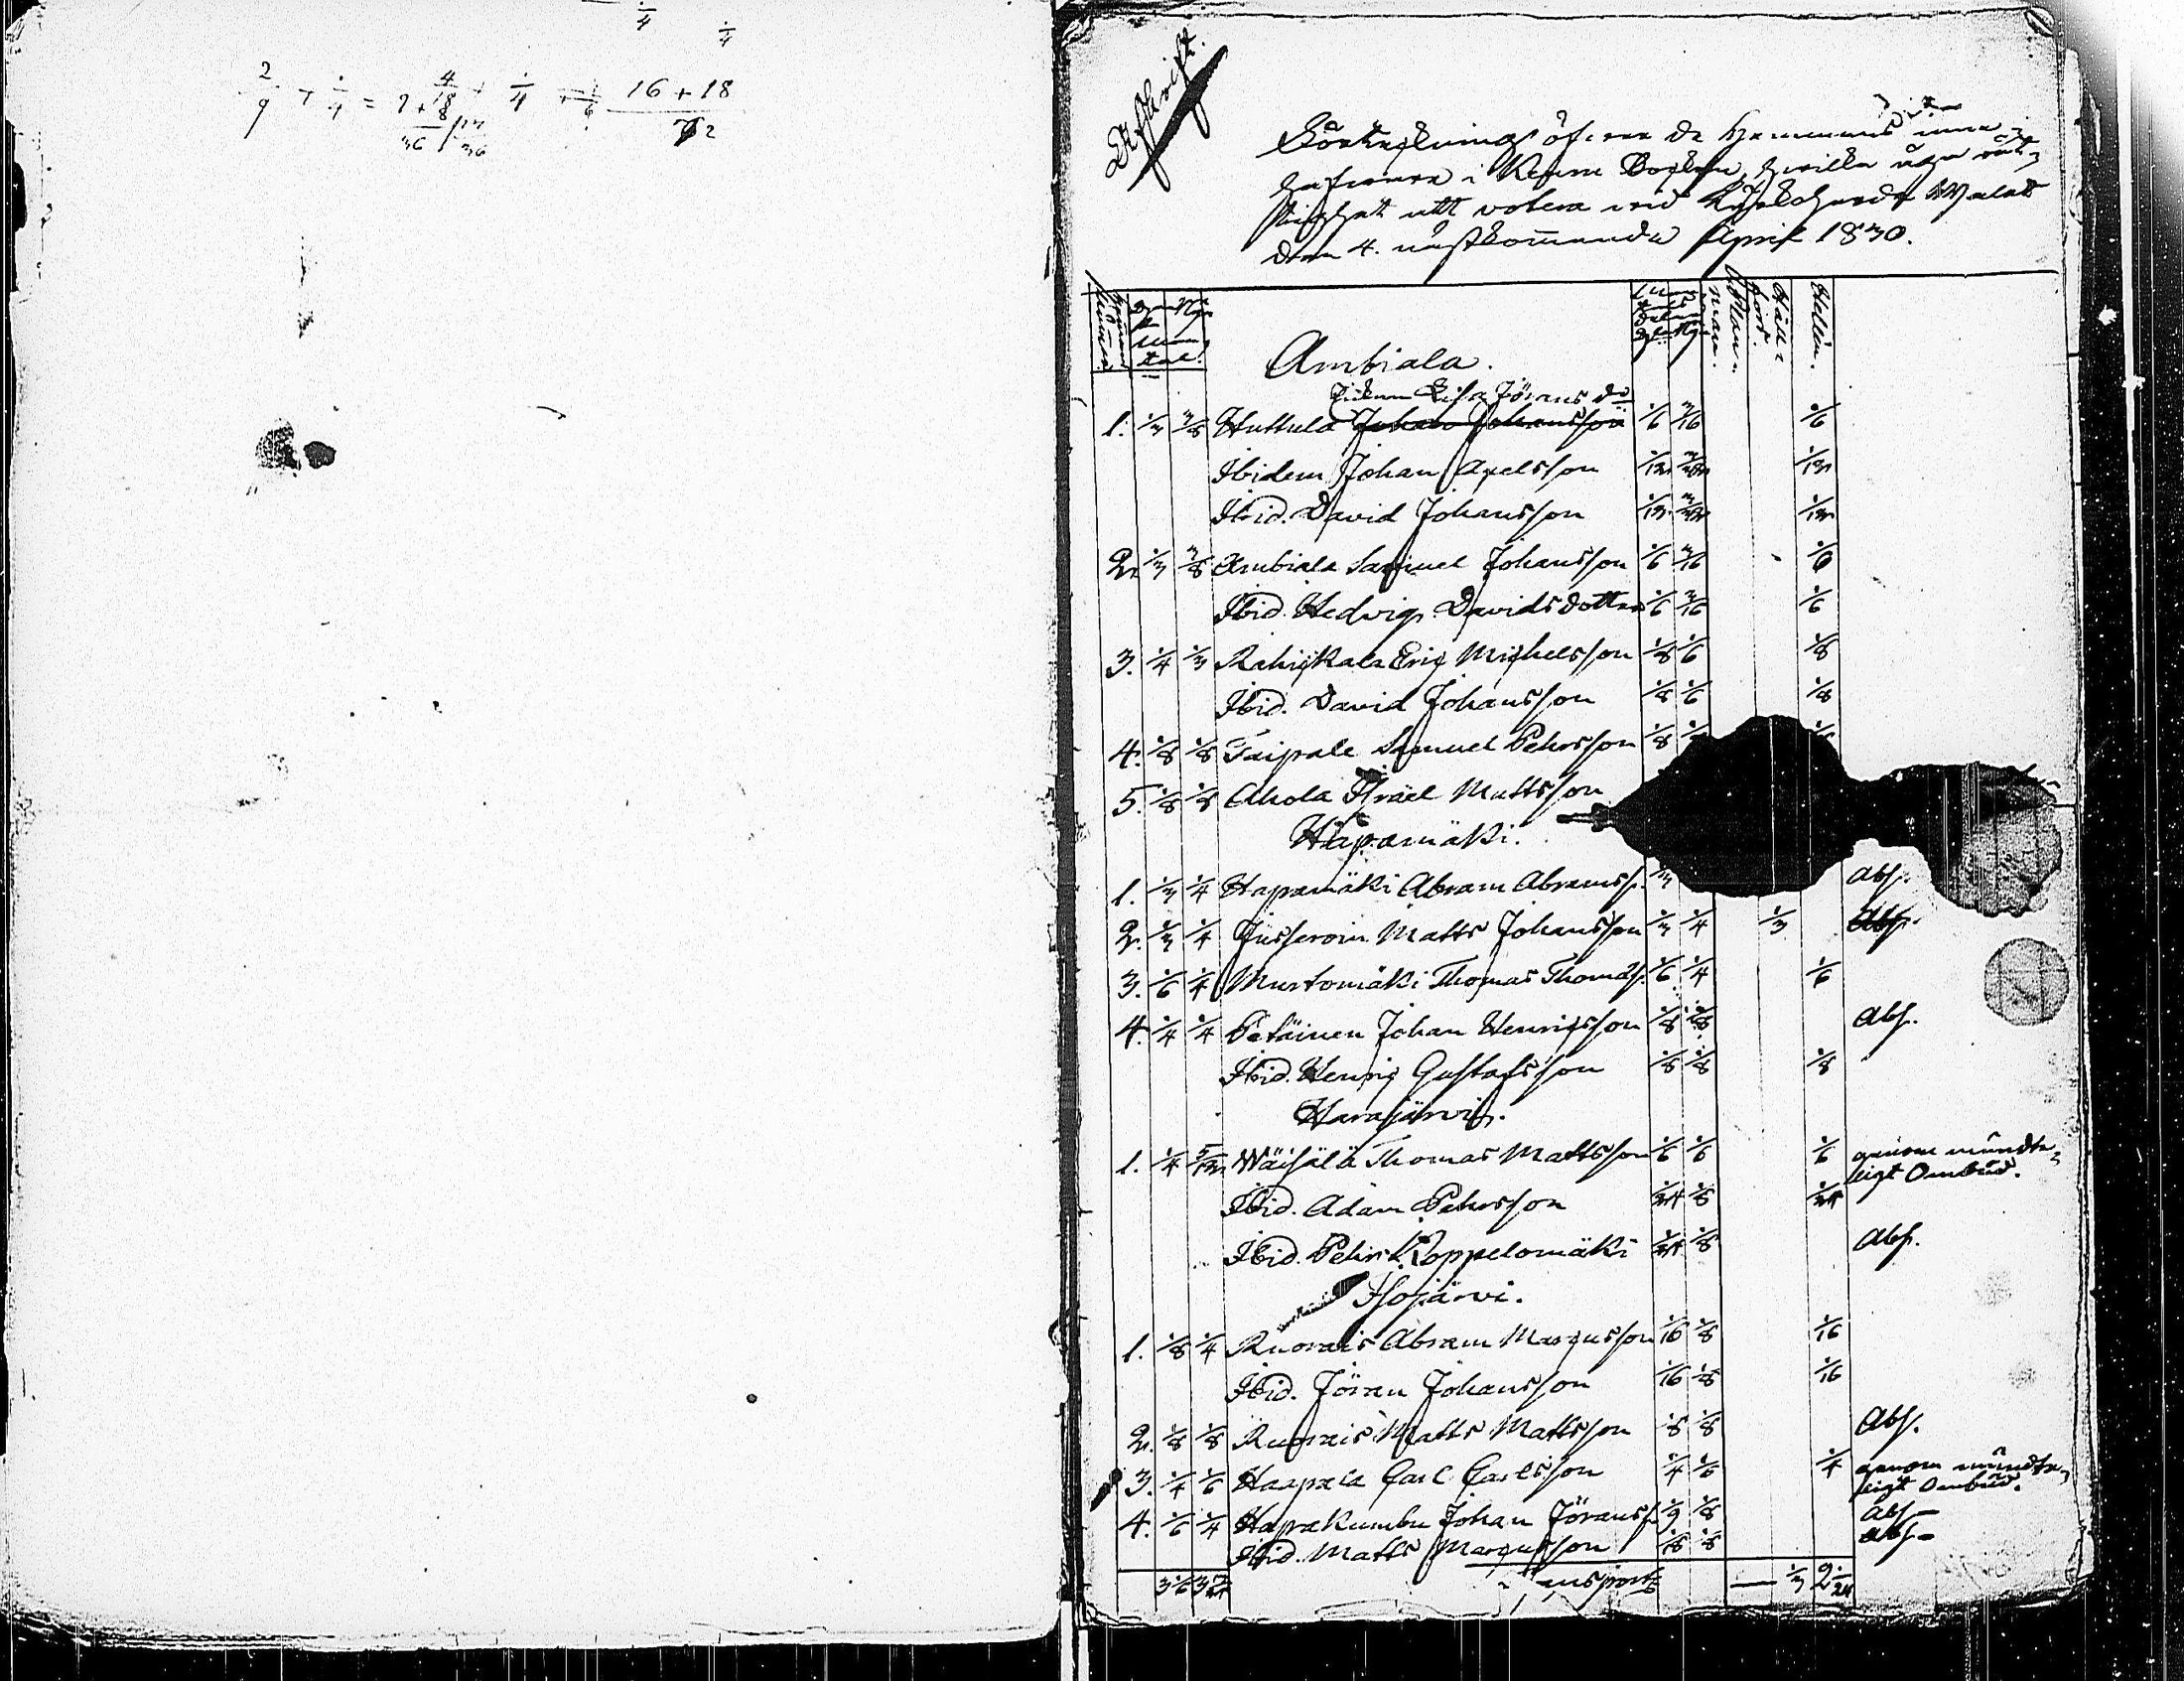 2/9 + 1/4 =
16 + 18
Afskrift.
Förteckning öfver de Hemmans inne-
hafvare i Keuru Socken, hvilka äga rät-
tighet att votera vid Kyrkoherde Walet
den 4. nästkommande April 1830.
Ambiala.
Enkan Lisa Jörans dr
1. 1/3 3/8 Huttula Johan Johansson 1/6 3/16 1/6
Ibidem Johan Axelsson 1/12 1/12
Ibid. David Johansson 1/12 1/12
2. 1/3 3/8 Ambiala Samuel Johansson 1/6 3/16 1/6
Ibid. Hedvig Davidsdotter 1/6 3/16 1/6
3. 1/4 1/3 Eric Michelsson 1/8 1/6 1/8
Ibid. David Johansson 1/8 1/6 1/8
4. 1/8 1/8 Taipale Samuel Pehrsson 1/8
5. 1/8 1/8 Ahola Israel Mattsson
Hapamäki.
1. 1/3 1/4 Hapamäki Abram Abramss. 1/3 Abs.
2. 1/3 1/4 Matts Johansson 1/3 1/4 1/3 Abs.
3. 1/6 1/4 Murtomäki Thomas Thomass. 1/6 1/4 1/6
4. 1/4 1/4 Petäinen Johan Henricsson 1/8 1/8 Abs.
Ibid. Henric Gustafsson 1/8 1/8 1/8
Harajärvi.
1. 1/4 5/12 Wäisälä Thomas Mattsson 1/6 1/6 1/6 genom mundte-
ligt Ombud.
Ibid. Adam Pehrsson 1/24 1/8 1/24
Ibid. Pehr Koppelomäki 1/24 1/8 Abs.
Isojärvi.
1. 1/8 1/4 Ruokais Abram Marcusson 1/16 1/8 1/16
Ibid. Jöran Johansson 1/16 1/8 1/16
2. 1/8 1/8 Matts Mattsson 1/8 1/8 Abs.
3. 1/4 1/6 Haapala Carl Carlsson 1/4 1/6 1/4 genom mundte-
ligt Ombud.
4. 1/6 1/4 Johan Jöranss. 1/9 1/8 Abs
Ibid. Matts Marcusson 1/18 1/8 Abs
3 1/6 3 7/24 1/3 2 1/24